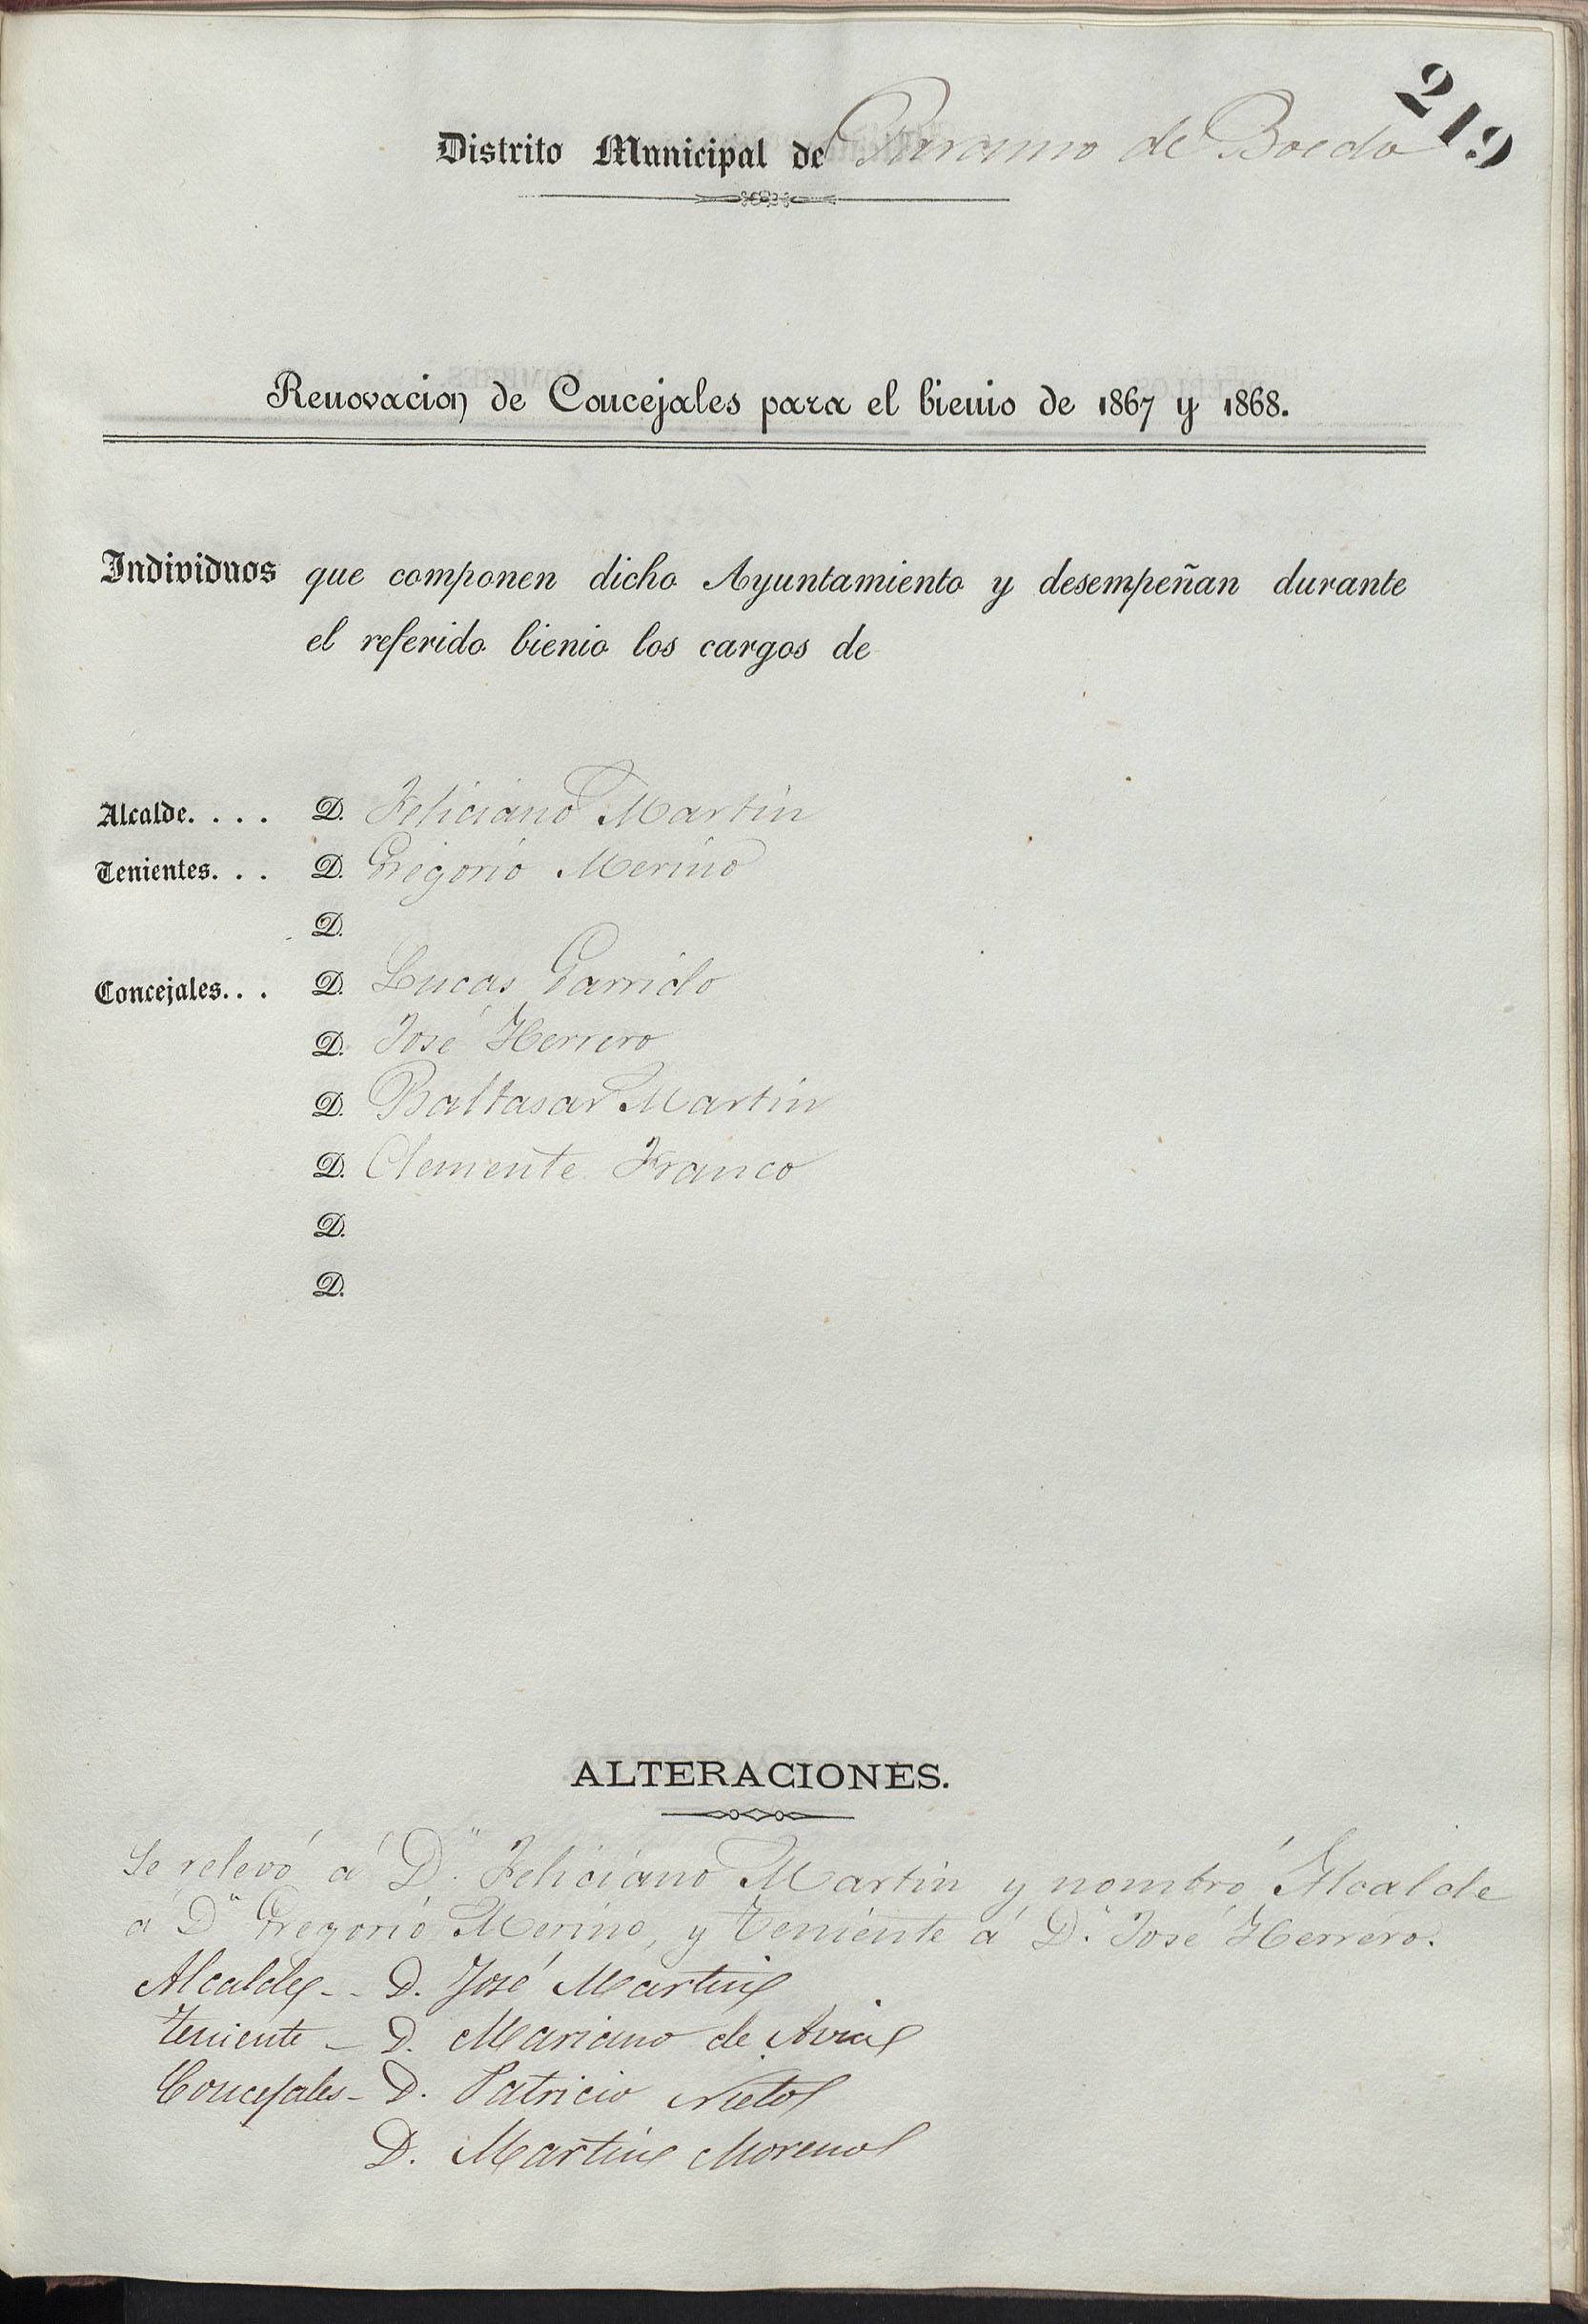 219
Distrito Municipal de Páramo de Boedo
Renovacion de Concejales para el bienio de 1867 y 1868.
Individuos que componen dicho Ayuntamiento y desempeñan durante
el referido bienio los cargos de
Alcalde. . . . D. Feliciano Martin
Tenientes. . . D. Gregorio Merino
D.
Concejales. . . D. Lucas Garrido
D. José Herrero
D. Baltasar Martin
D. Clemente Franco
D.
D.
ALTERACIONES.
Se relevó á Dn. Feliciano Martin y nombró Alcalde
á Dn Gregorio Merino, y Teniente á Dn. José Herrero.
Alcalde - - D. José Martin
Teniente - D. Mariano de Avia
Concejales - D. Patricio Nieto
D. Martin Moreno